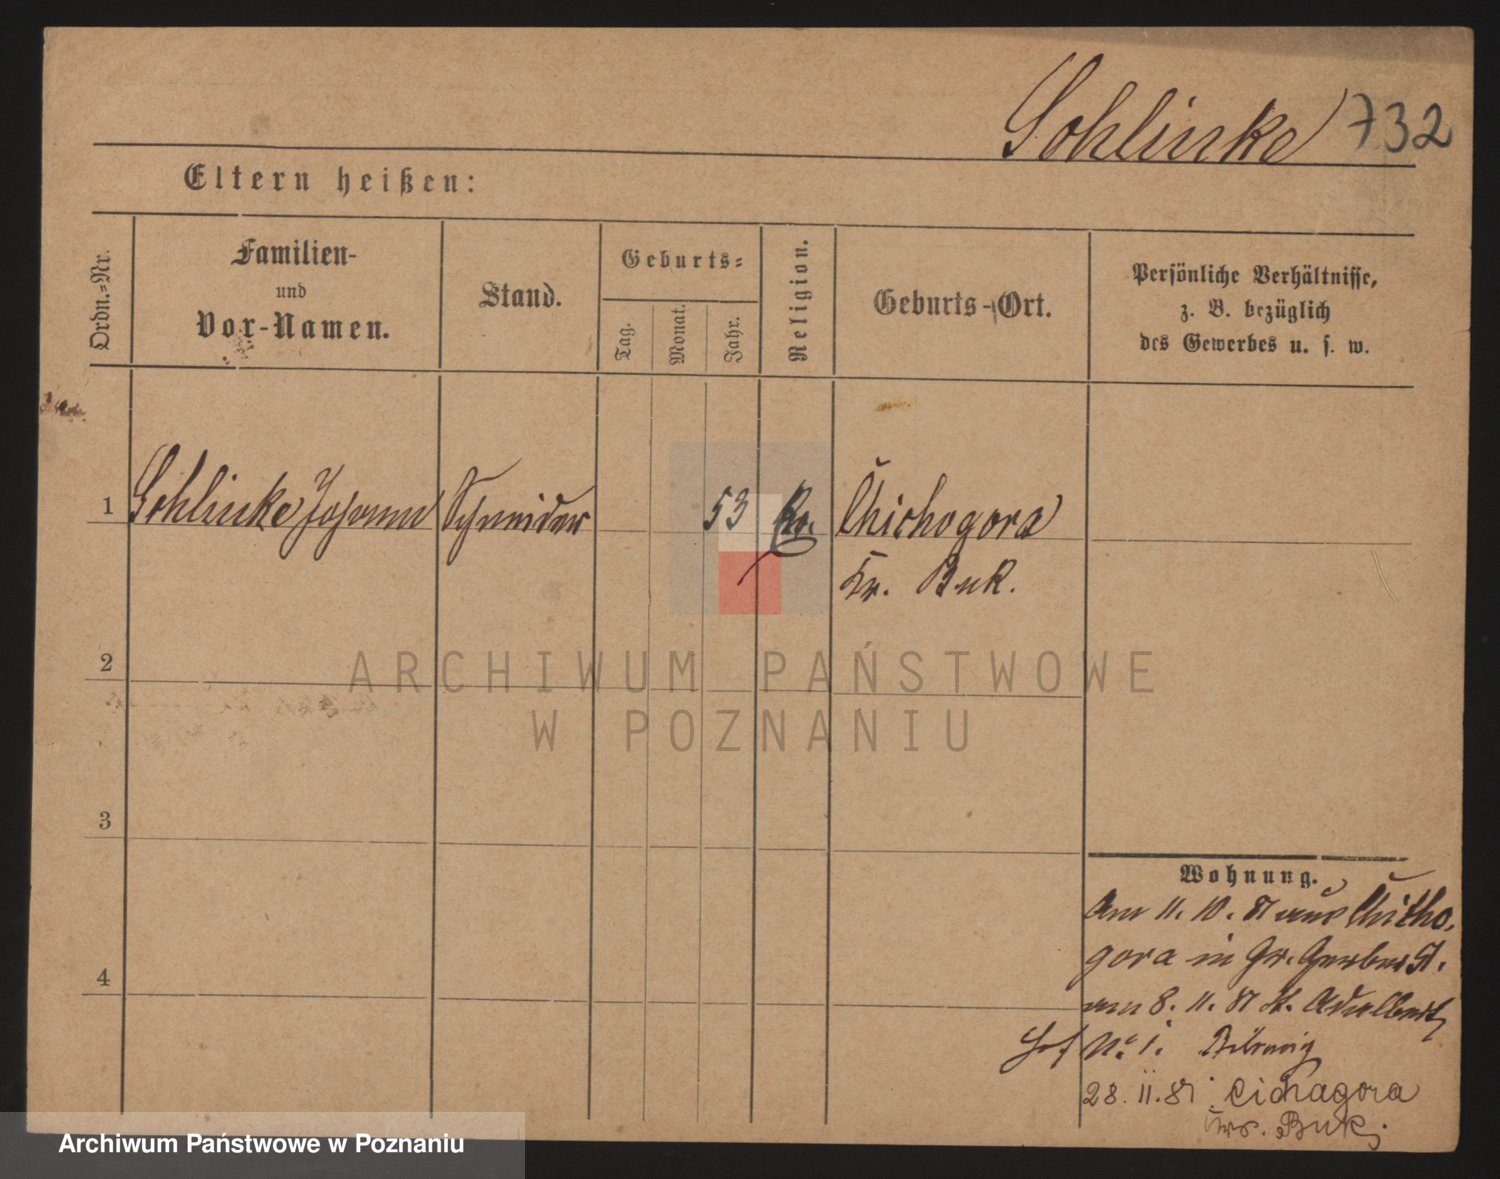 Sohlinke 732
Eltern heißen:
Ordn.=Nr.
Familien-
und
Vor-Namen.
Stand.
Geburts=
Tag.
Monat.
Jahr.
Religion.
Geburts-Ort.
Persönliche Verhältnisse,
z. B. bezüglich
des Gewerbes u. s. w.
1 Sohlinke Johann Schneider 53 Chichogora
Kr. Buk.
2
3
4
Wohnung.
Am 11. 10. 81 aus Chicho-
gora in Gr. Gerber St.
am 8. 11. 81 St. Adalbert
Hof No 1.
28. 11. 81 Cichagora
Krs. Buk.
ARCHIWUM PAŃSTWOWE
W POZNANIU
Archiwum Państwowe w Poznaniu